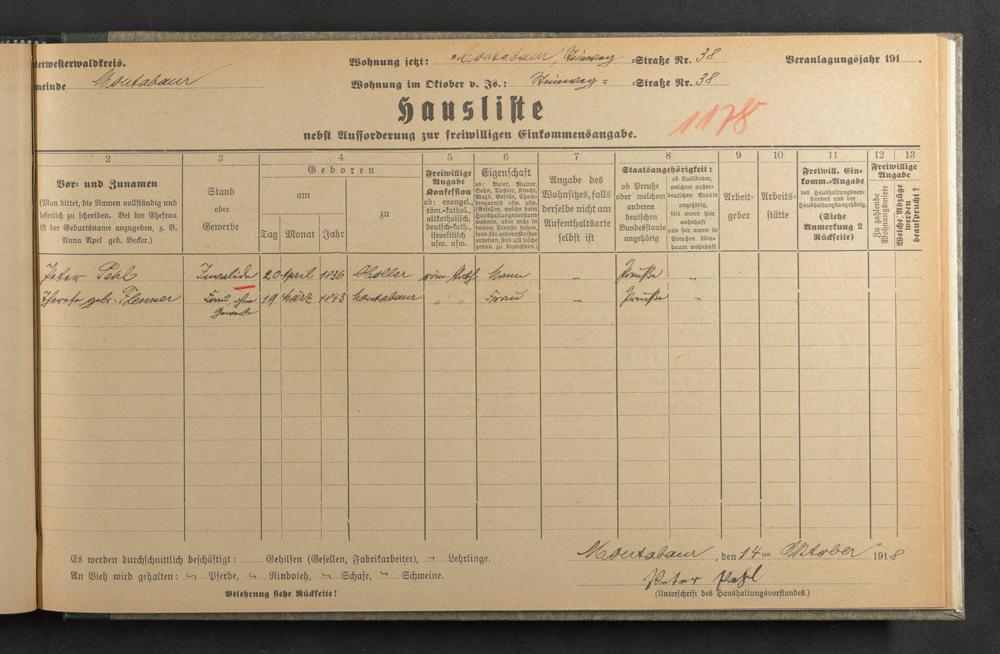 terwesterwaldkreis. Wohnung jetzt: Montabaur, Steinweg =Straße Nr. 38 Veranlagungsjahr 191
meinde Montabaur Wohnung im Oktober v. Js.: Steinweg =Straße Nr. 38
Hausliste
1178
nebst Aufforderung zur freiwilligen Einkommensangabe.
2 3 4 5 6 7 8 9 10 11 12 13
Vor- und Zunamen
(Man bittet, die Namen vollständig und
leserlich zu schreiben. Bei der Ehefrau
ist der Geburtsname anzugeben, z. B.
Anna Apel geb. Becker.)
Stand
oder
Gewerbe
Geboren
am
zu
Tag Monat Jahr
Freiwillige
Angabe
Konfession
ob: evangel.,
röm.-kathol.,
altkatholisch,
deutsch-kath.,
israelitisch
usw. usw.
Eigenschaft
ob: Vater, Mutter,
Sohn, Tochter, Knecht,
Angabe des
Wohnsitzes, falls
derselbe nicht am
Aufenthaltsorte
selbst ist
Staatsangehörigkeit:
ob Preuße
oder welchem
anderen
deutschen
Bundesstaate
angehörig
ob Ausländer,
welchem außer-
deutschen Staate
angehörig,
seit wann hier
wohnhaft
und seit wann in
Preußen über-
haupt wohnhaft
Arbeit-
geber
Arbeits-
stätte
Freiwill. Ein-
komm.-Angabe
des Haushaltungsvor-
standes und der
Haushaltungsangehörig.
(Siehe
Anmerkung 2
Rückseite)
Freiwillige
Angabe
Zu zahlende
Wohnungsmiete
Welche Abzüge
werden
beansprucht?
Peter Pehl Invalide 20 April 1836 Holler röm. kath. Mann – Preuße –
Therese geb. Frau, ohne Gewerbe 19 März Montabaur " " Frau – Preuße –
Es werden durchschnittlich beschäftigt: Gehilfen (Gesellen, Fabrikarbeiter), Lehrlinge.
An Vieh wird gehalten: Pferde, Rindvieh, Schafe, Schweine.
Belehrung siehe Rückseite!
Montabaur, den 14ten Oktober 1918
Peter Pehl
(Unterschrift des Haushaltungsvorstandes.)